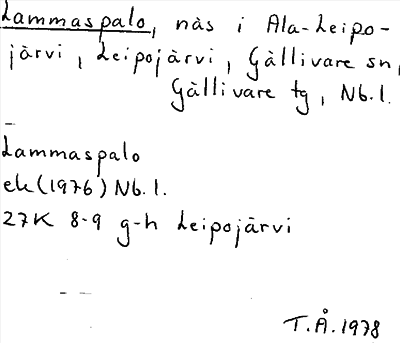 Lammaspalo, näs i Ala-Leipo-
järvi, Leipojärvi, Gällivare sn,
Gällivare tg, Nb.l.
Lammaspalo
ek (1976) Nb.l.
27K 8-9 g-h Leipojärvi
T.Å. 1978